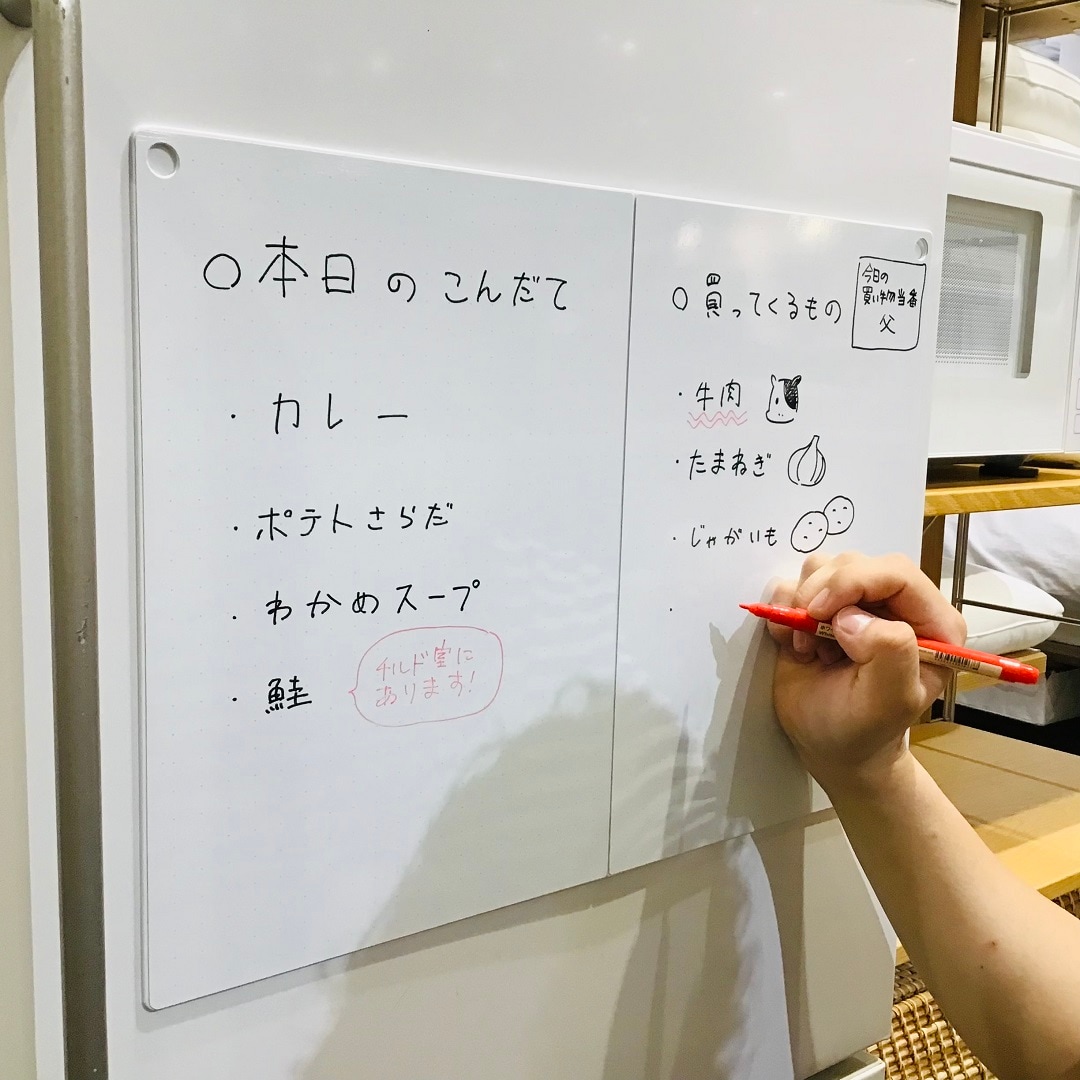 ○本日のこんだて
・カレー
・ポテトさらだ
・わかめスープ
・鮭
チルド室に
あります!
○買ってくるもの
今日の
買い物当番
父
・牛肉
・たまねぎ
・じゃがいも
・